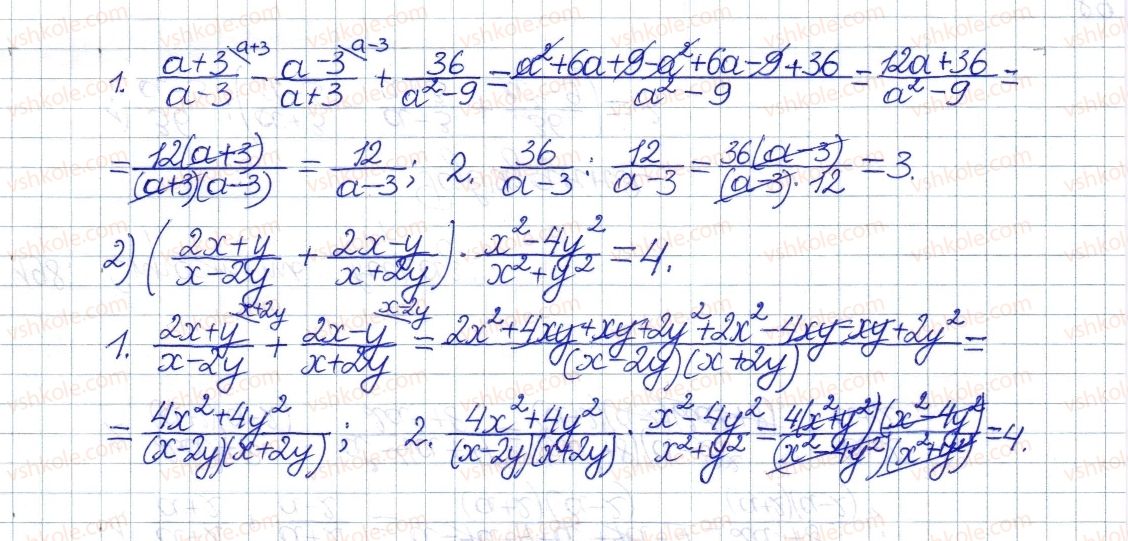 1. (a+3)/(a-3) \a+3 - (a-3)/(a+3) \a-3 + 36/(a²-9) = (a²+6a+9-a²+6a-9+36)/(a²-9) = (12a+36)/(a²-9) =
= 12(a+3)/((a+3)(a-3)) = 12/(a-3); 2. 36/(a-3) : 12/(a-3) = 36(a-3)/((a-3)·12) = 3.
2) ((2x+y)/(x-2y) + (2x-y)/(x+2y)) · (x²-4y²)/(x²+y²) = 4.
1. (2x+y)/(x-2y) \x+2y + (2x-y)/(x+2y) \x-2y = (2x²+4xy+xy+2y²+2x²-4xy-xy+2y²)/((x-2y)(x+2y)) =
= (4x²+4y²)/((x-2y)(x+2y)); 2. (4x²+4y²)/((x-2y)(x+2y)) · (x²-4y²)/(x²+y²) = 4(x²+y²)(x²-4y²)/((x²-4y²)(x²+y²)) = 4.